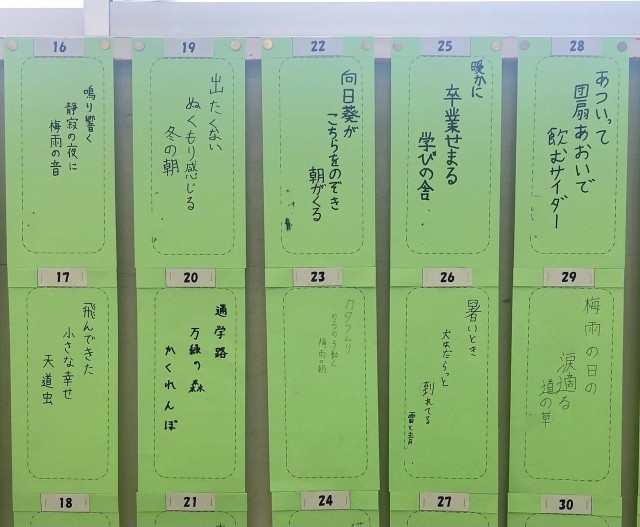 16
鳴り響く
静寂の夜に
梅雨の音
19
出たくない
ぬくもり感じる
冬の朝
22
向日葵が
こちらをのぞき
朝がくる
25
暖かに
卒業せまる
学びの舎
28
あついって
団扇あおいで
飲むサイダー
17
飛んできた
小さな幸せ
天道虫
20
通学路
万緑の森
かくれんぼ
23
カタツムリ
のうのう動く
梅雨の朝
26
暑いとき
犬もだらっと
到れてる
29
梅雨の日の
涙適る
道の草
18
21
24
27
30